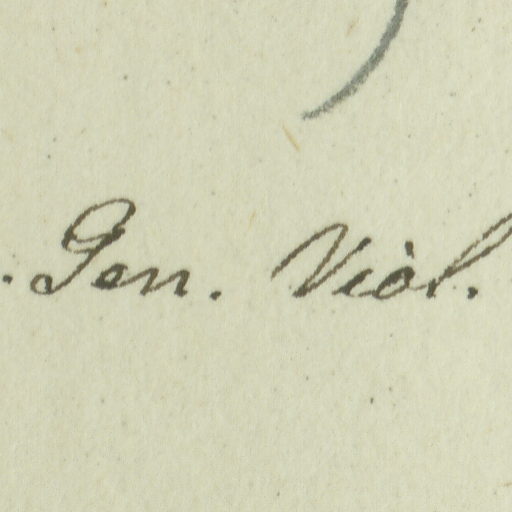 . Gen. Viol.